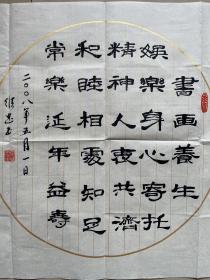 書画養生
娯樂身心寄托
精神人丧共濟
和睦相處知足
常樂延年益壽
二〇〇八年五月一日